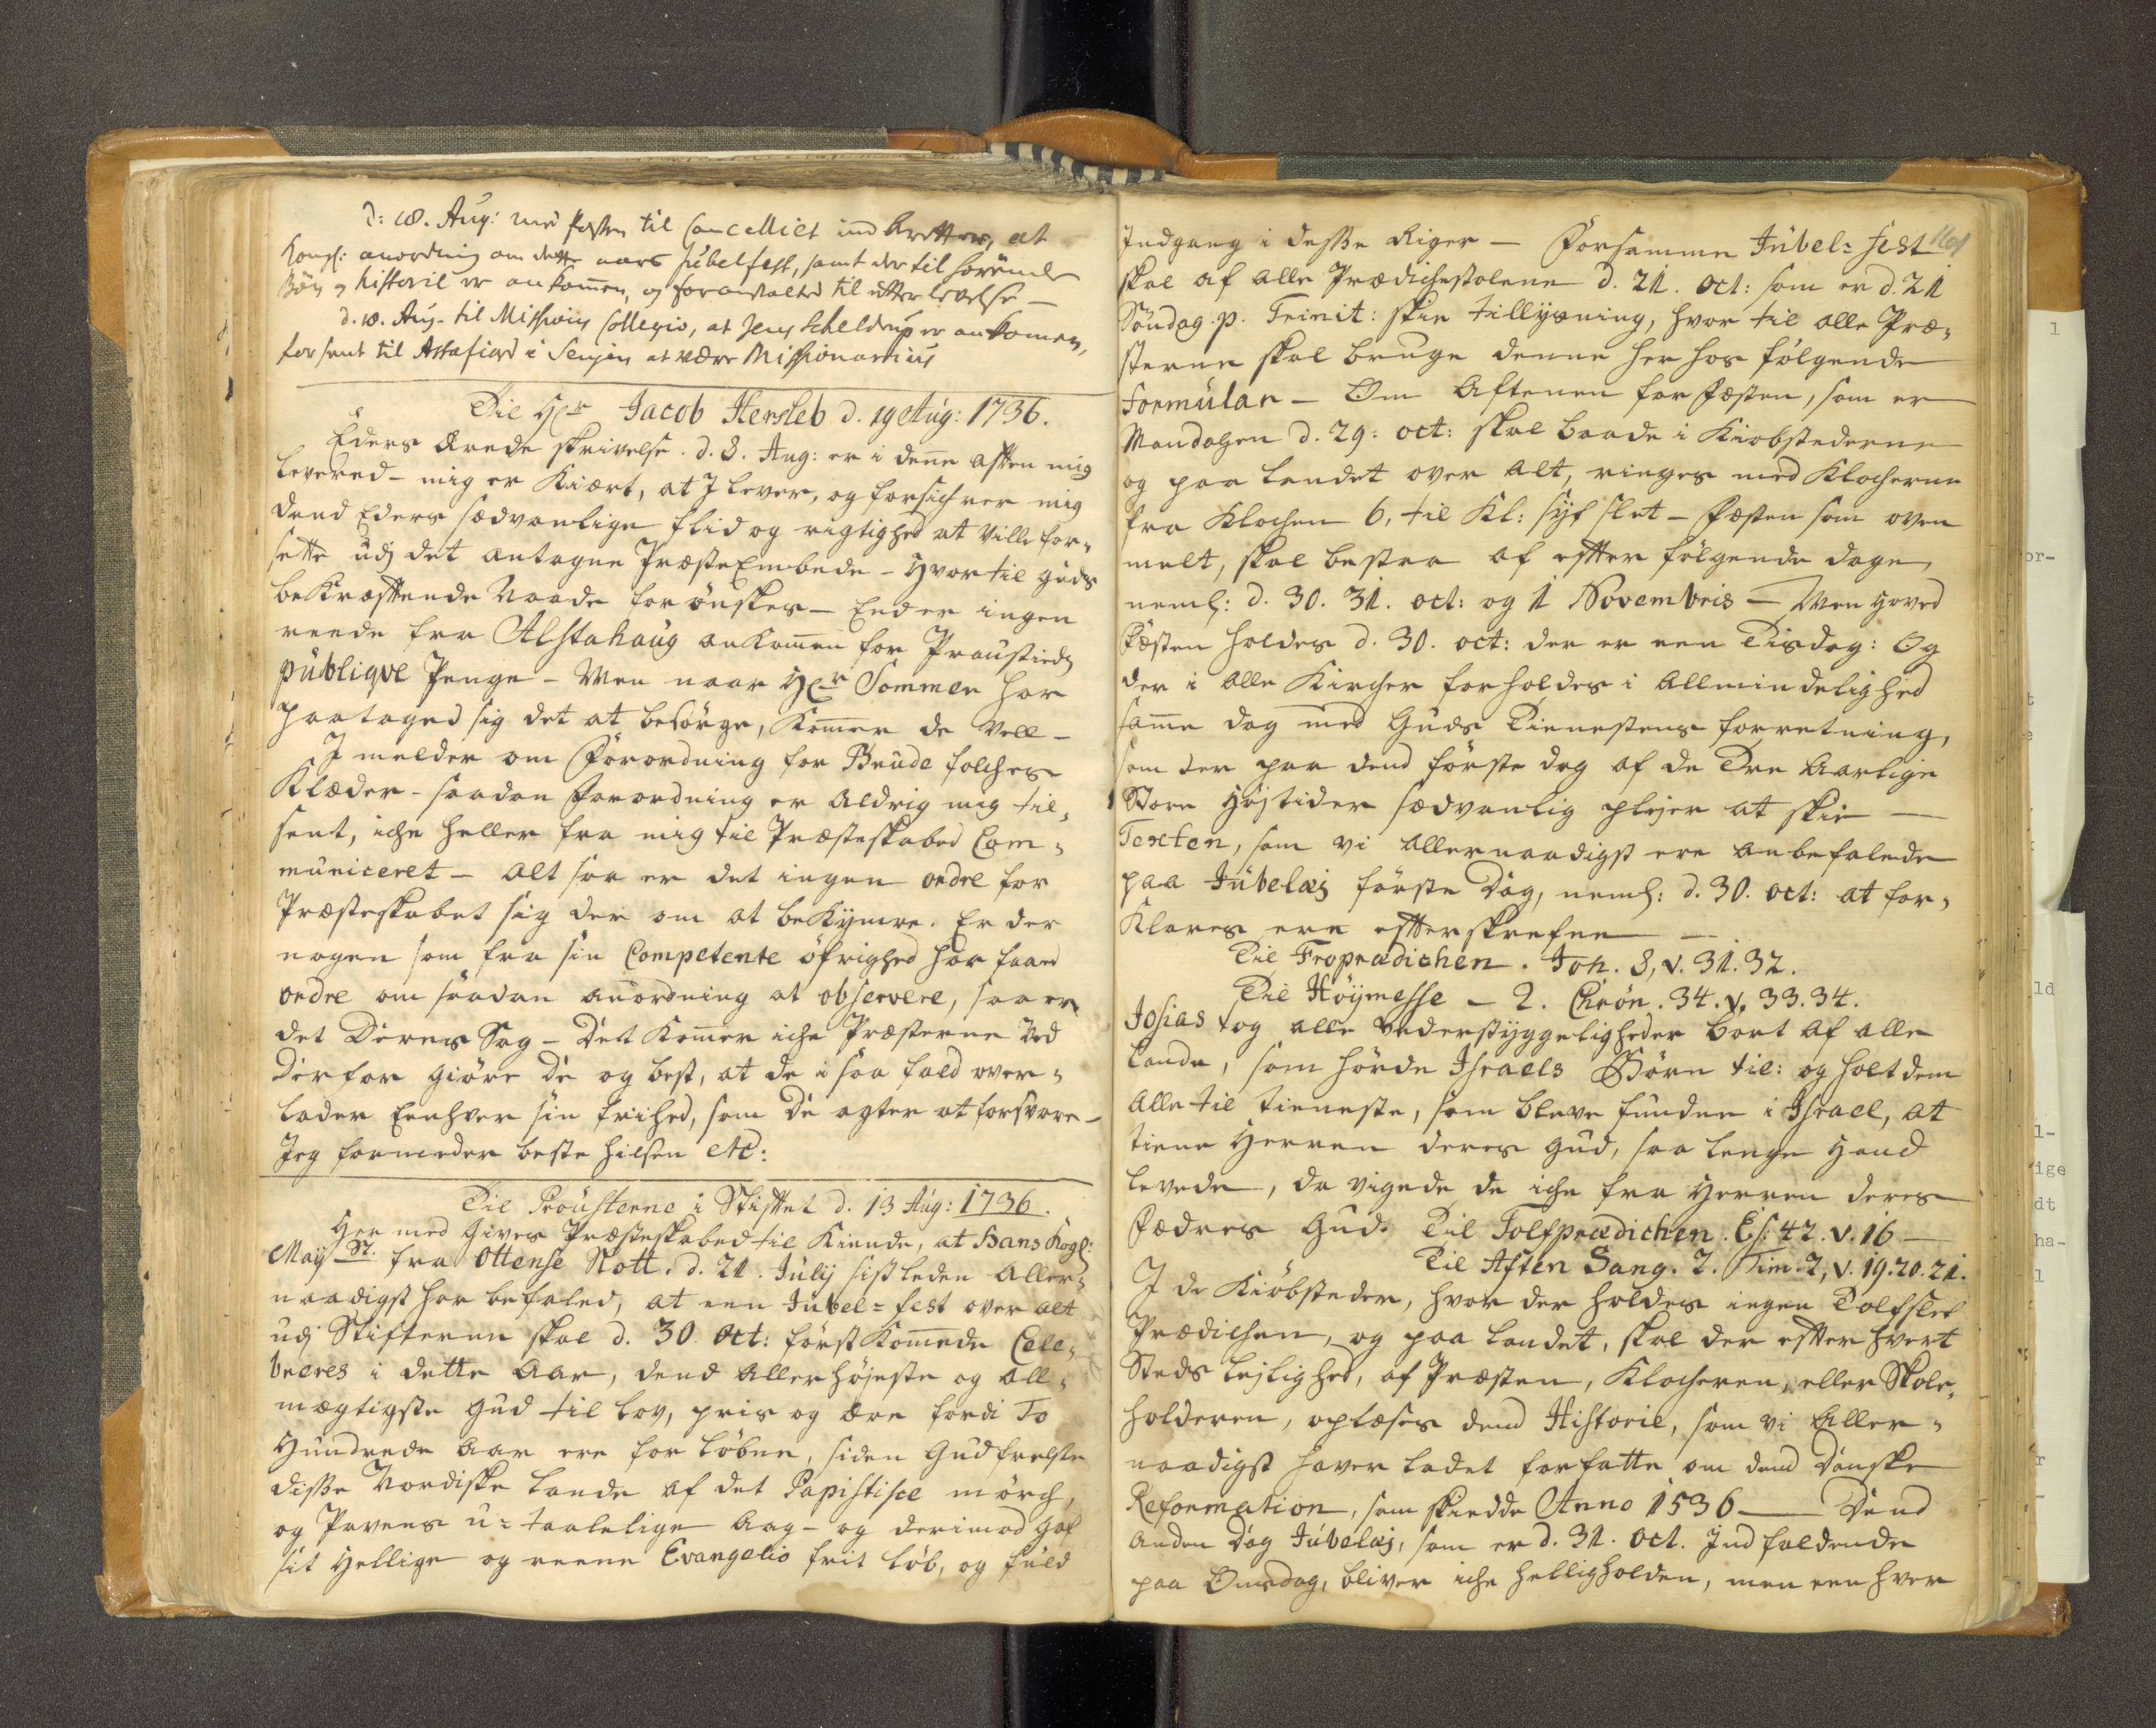 d: 18. Aug: med posten til Cancelliet indberettes, at
Kongl: anordning om dette aars Jubelfest, samt der til hørende
Bøn og historie er ankommen, og foranstalted til effterlevelse —
d. 18. Aug. til Missions Collegio, at Jens Scheldrup er ankomen,
for sent til Astafiord i Senjen at være Missionarius
Til Hr Jacob Hersleb d. 19 Aug: 1736.
Eders ærede skrivelse d. 8. Aug: er i denne afften mig
levered – mig er Kiært, at I lever, og forsichrer mig
dend Eders sædvanlige flid og rigtighed at ville for,
sette udj det antagne Præste Embede – Hvortil Guds
bekrafftende Naade forønskes – Endnu ingen
reede fra Alstahaug ankommen for Proustiets
publiqve Penge – Men naar Hr Sommer har
paataged sig det at besørge, kommer de vell –
I melder om Forordning for Brude folches
Klæder – saadan Forordning er aldrig mig til,
sent, iche heller fra mig til Præsteskabed Com,
municeret – alt saa er det ingen ordre for
Præsteskabet sig der om at bekymre. Er der
nogen som fra sin Competente øfrighed har faaed
ordre om saadan anordning at observere, saa er
det Deres Sag – Det kommer iche Præsterne ved
Derfor giøre De og best, at de i saa fald over,
lader Eenhver sin frihed, som De agter at forsvare –
Jeg formelder beste hilsen etc:
Til Prousterne i Stifftet d. 13 Aug: 1736.
Her med gives Præsteskabed til Kiende, at Hans Kogl:
Mayst. fra Ottense Slott. d. 21. July sistleden Aller,
naadigst har befaled, at een Jubel=fest over alt
udj Stifterne skal d. 30. Oct: førstkommende Cele,
breres i dette Aar, dend Allerhøjeste og all,
mægtigste Gud til lov, pris og ære fordi To
Hundrede Aar ere forløbne, siden Gud frelste
disse Nordiske lande af det Papistisce mørch,
og Pavens u=taalelige Aag – og derimod gaf
sit Hellige og reene Evangelio frit løb, og fuld
Indgang i desse Riger — Forsamme Jubel=fest
skal af alle Prædichestolene d. 21. Oct: som er d. 21
Søndag p. Trinit: skee tillysning, hvor til alle Præ,
sterne skal bruge denne her hos følgende
Formular – Om Aftenen for Festen, som er
Mandagen d. 29: oct: skal baade i Kiøbstederne
og paa landet over alt, ringes med Klocherne
fra Klochen 6, til Kl: syf slet – Festen som oven
melt, skal bestaa af effter følgende dage,
neml: d. 30. 31. oct: og 1 Novembris – Men Hoved
Festen holdes d. 30. oct: der er een Tisdag: Og
der i alle Kircher forholdes i Allmindelighed
samme dag med Guds Tienestens forretning,
som der paa dend første dag af de Tre Aarlige
Store Højtider sædvanlig plejer at skie —
Texten, som vi allernaadigst ere anbefalede
paa Jubelæi første Dag, neml: d. 30. oct: at for,
Klares ere effterskrefne —
Til Froprædichen. Joh. 8, v. 31. 32.
Til Høymesse – 2. Chrøn. 34. v. 33. 34.
Josias tog alle vederstyggeligheder bort af alle
Lande, som hørde Israels Børn til: og holt dem
alle til tieneste, som bleve funden i Israel, at
tiene Herren deres Gud, saa lenge Hand
levede, da vigede de iche fra Herren deres
Fædres Gud. Til Tolfprædichen. Es: 42. v. 16 —
Til Aften Sang. 2. Tim. 2, v. 19. 20. 21.
I de Kiøbsteder, hvor der holdes ingen Tolfslet
Prædichen, og paa landet, skal der effter hvert
Steds lejlighed, af Præsten, Klocheren, eller Skole,
holderen, oplæses dend Historie, som vi Aller,
naadigst haver ladet forfatte om dend Danske
Reformation, som skiedde Anno 1536 — Dend
anden Dag Jubelæi, som er d. 31. oct. Ind faldende
paa Onsdag, bliver iche helligholden, men een hver